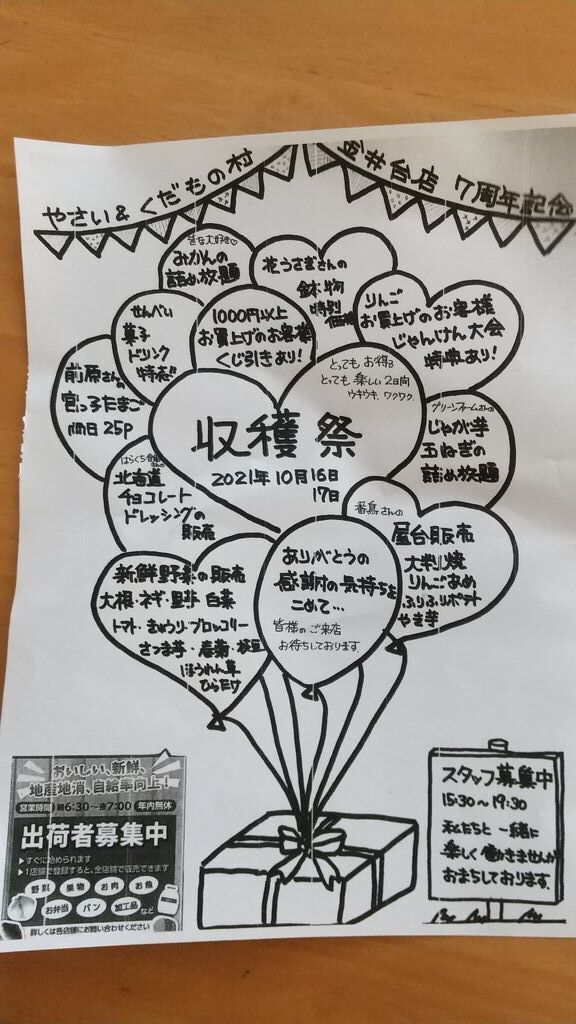 やさい&くだもの村
金井台店 7周年記念
皆な大好き♡
みかんの
詰め放題
花うさぎさんの
鉢物
特別
価格
せんべい
菓子
ドリンク
特売
1000円以上
お買上げのお客様
くじ引きあり!
りんご
お買上げのお客様
じゃんけん大会
特典あり!
前原さん
宮っ子たまご
両日 25P
とっても お得な
とっても 楽しい 2日間
ウキウキ、ワクワク
収穫祭
2021年10月16日
17日
グリーンファームさんの
じゃが芋
玉ねぎの
詰め放題
はらくち
さんの
北海道
チョコレート
ドレッシングの
販売
さんの
屋台販売
大判焼
りんごあめ
ふりふりポテト
やき芋
新鮮野菜の販売
大根・ネギ・里芋 白菜
トマト・きゅうり・ブロッコリー
さつま芋・春菊・枝豆
ほうれん草
ひらたけ
ありがとうの
感謝の気持ちを
こめて…
皆様のご来店
お待ちしております
おいしい、新鮮、
地産地消、自給率向上!
営業時間 朝6:30~夜7:00 年内無休
出荷者募集中
▶すぐに始められます
▶1店舗で登録すると、全店舗で販売できます
野菜 果物 お肉 お魚
お弁当 パン 加工品 など
詳しくは各店舗にお問い合わせください
スタッフ募集中
15:30~19:30
私たちと一緒に
楽しく働きませんか
おまちしております。